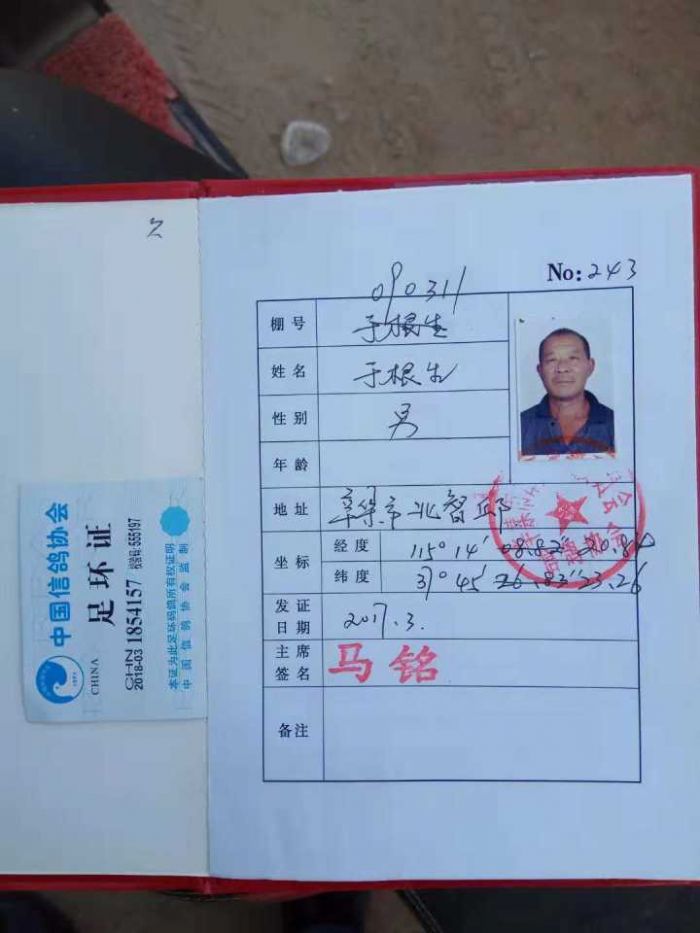 No: 243
090311
棚号 于根生
姓名 于根生
性别 男
年龄
地址 辛集市北智邱
坐标
经度 115° 14′ 08.82″ 20.84
纬度 37° 45′ 26.83″ 23.26
发证日期 2017.3.
主席签名 马铭
备注
中国信鸽协会
足环证
CHINA
CHN
2018-03 1854157 校验码:555197
本证为此足环码鸽所有权证明
中国信鸽协会监制